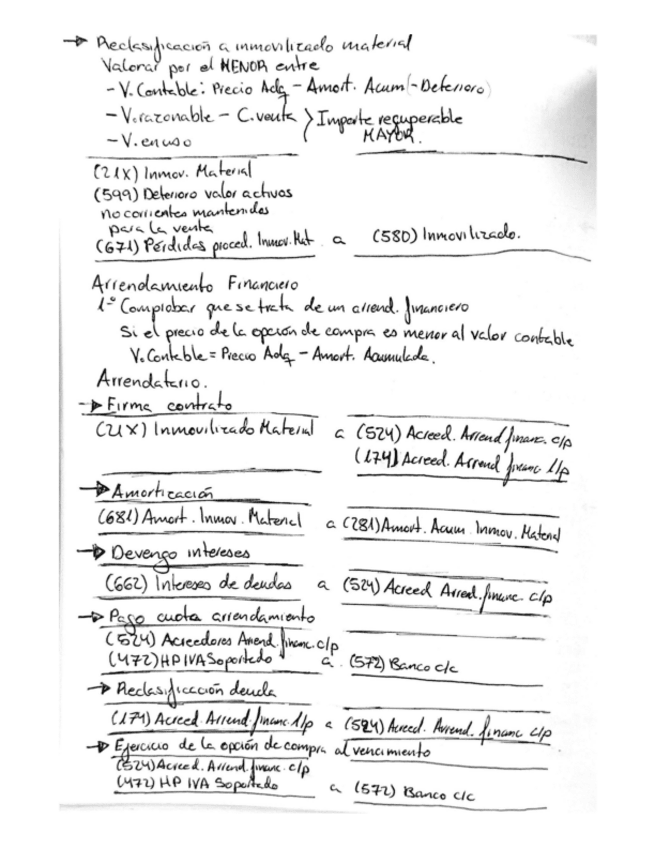 → Reclasificación a inmovilizado material
Valorar por el MENOR entre
- V. Contable: Precio Adq - Amort. Acum (- Deterioro)
- V. razonable - C. venta } Importe recuperable
- V. en uso MAYOR.
(21X) Inmov. Material
(599) Deterioro valor activos
no corrientes mantenidos
para la venta
(671) Pérdidas proced. Inmov. Mat a (580) Inmovilizado.
Arrendamiento Financiero
1º Comprobar que se trata de un arrend. financiero
Si el precio de la opción de compra es menor al valor contable
V. Contable = Precio Adq - Amort. Acumulada.
Arrendatario.
→ Firma contrato
(21X) Inmovilizado Material a (524) Acreed. Arrend financ. c/p
(174) Acreed. Arrend financ l/p
→ Amortización
(681) Amort. Inmov. Material a (281) Amort. Acum. Inmov. Material
→ Devengo intereses
(662) Intereses de deudas a (524) Acreed Arrend. financ. c/p
→ Pago cuota arrendamiento
(524) Acreedores Arrend. financ. c/p
(472) HP IVA Soportado a (572) Banco c/c
→ Reclasificación deuda
(174) Acreed. Arrend. financ. l/p a (524) Acreed. Arrend. financ c/p
→ Ejercicio de la opción de compra al vencimiento
(524) Acreed. Arrend. financ. c/p
(472) HP IVA Soportado a (572) Banco c/c